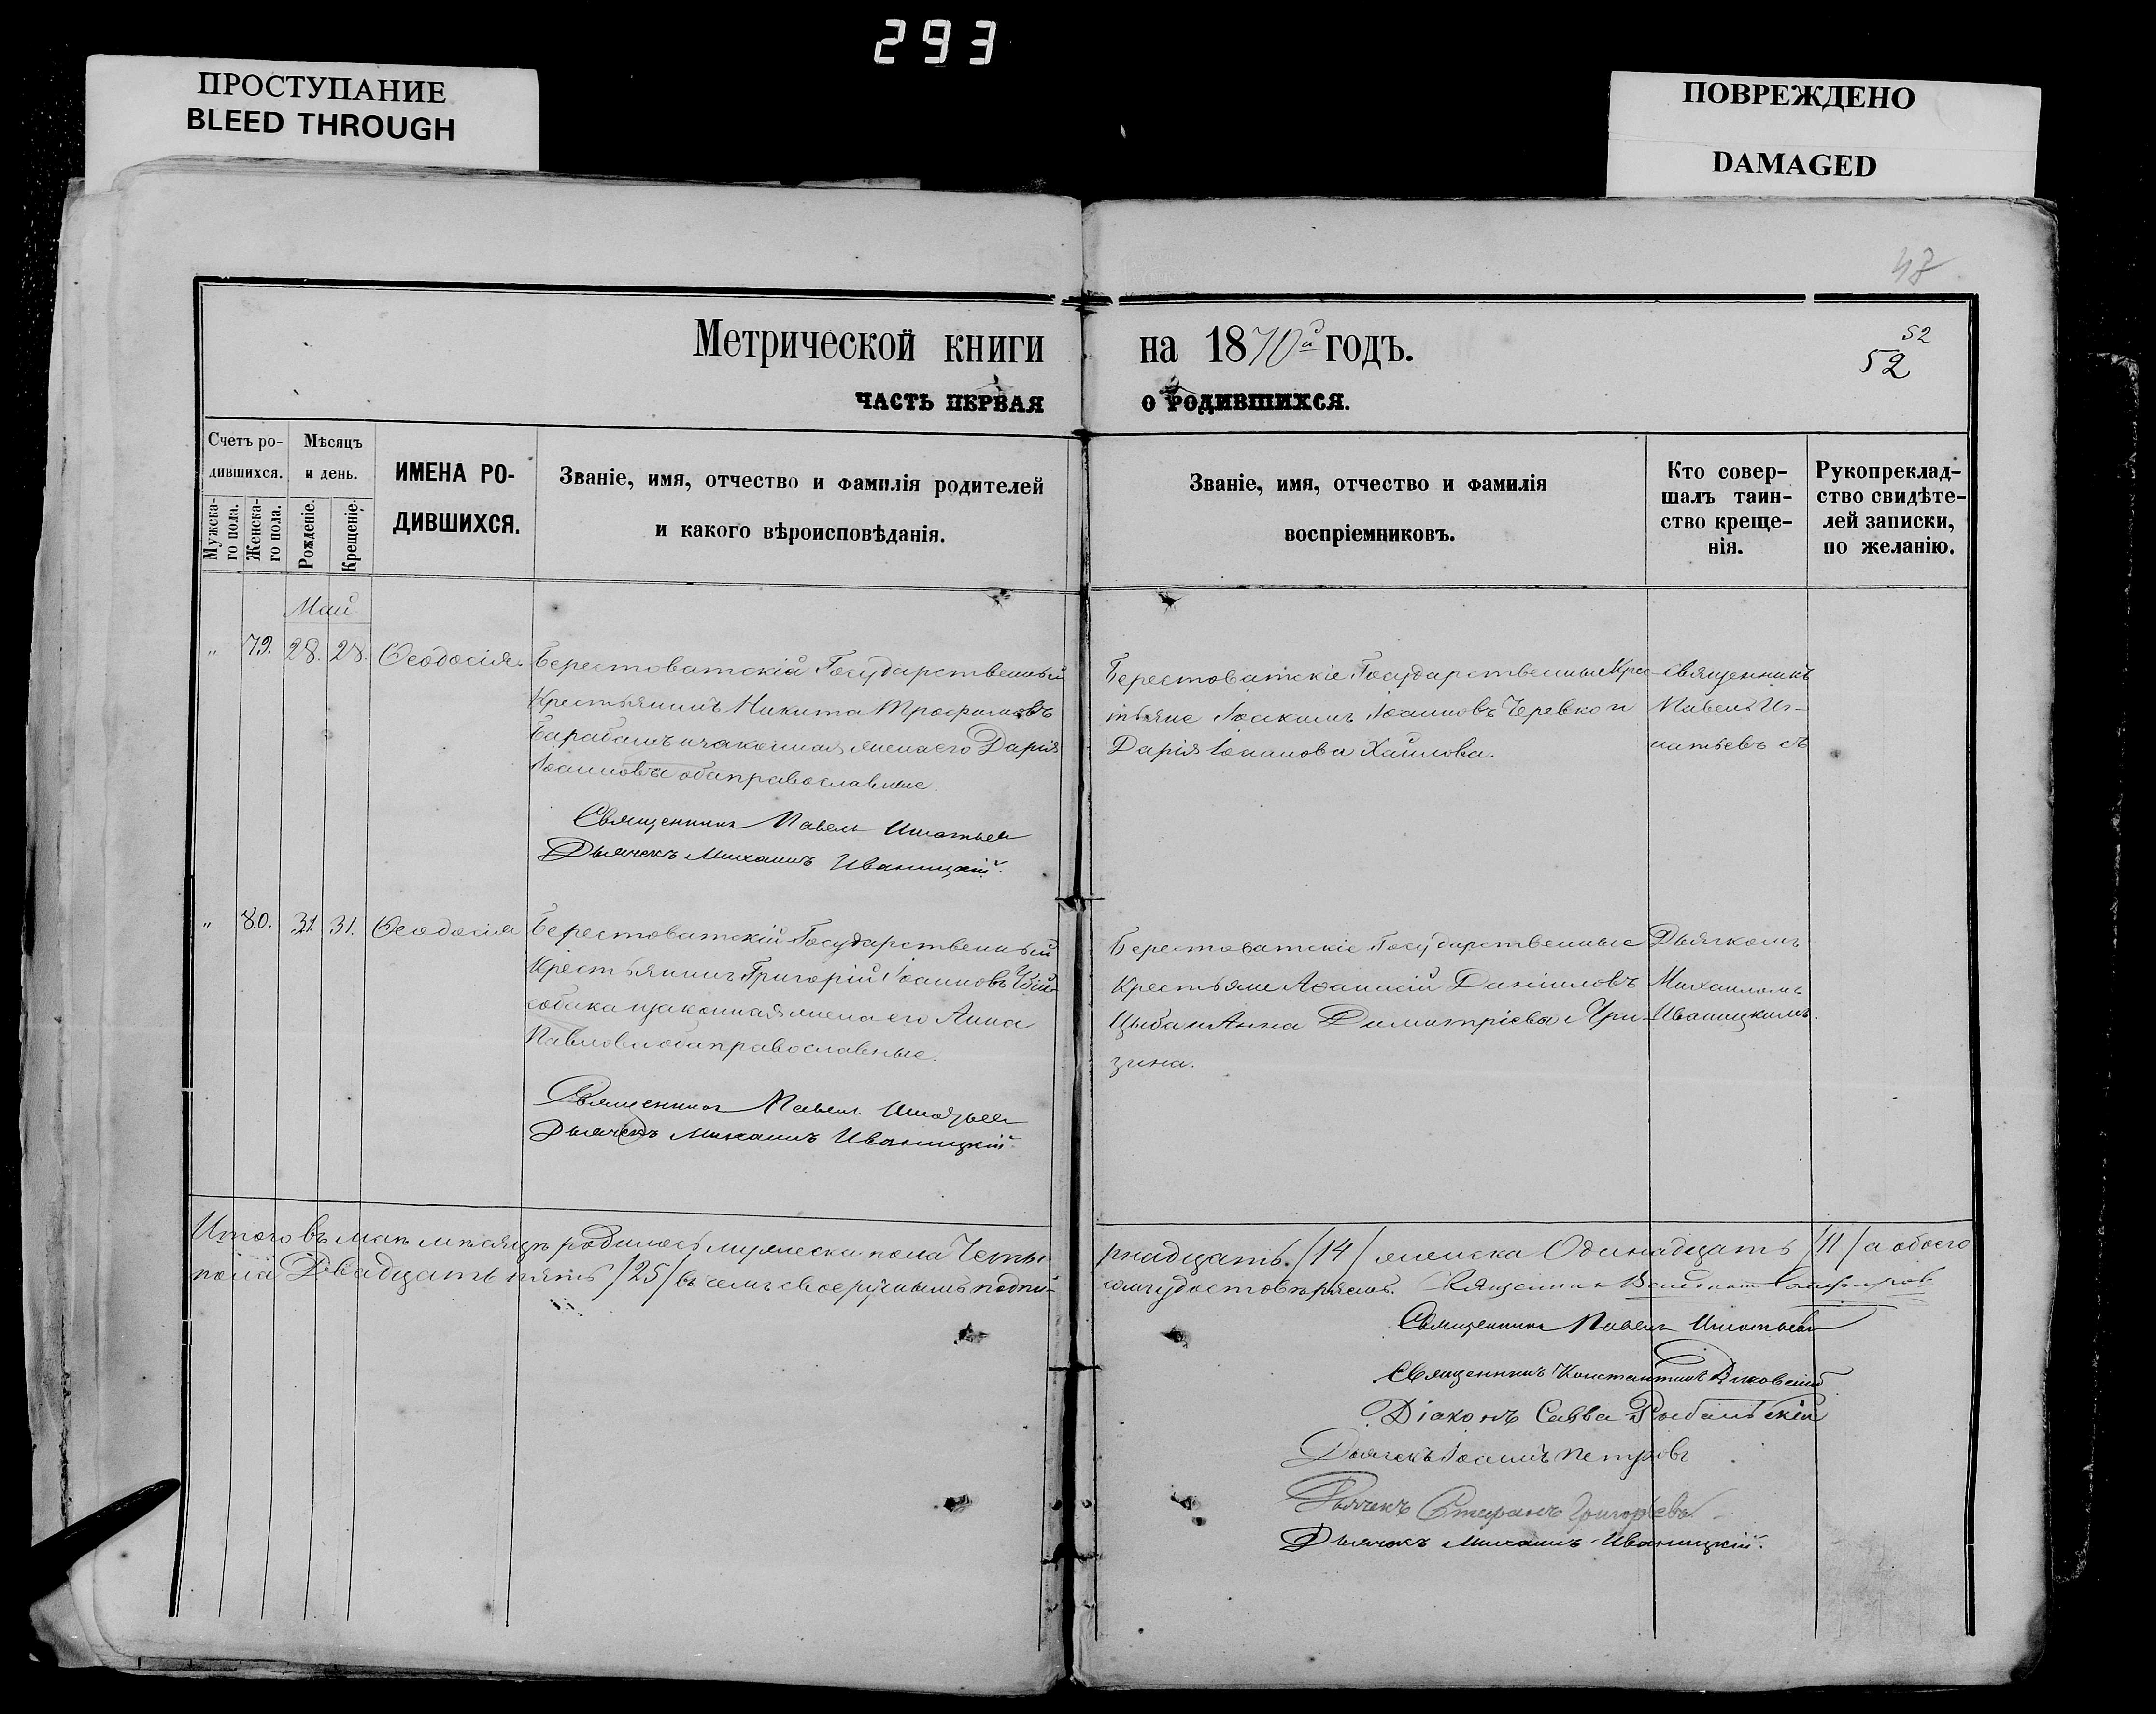 293
ПРОСТУПАНИЕ
BLEED THROUGH
ПОВРЕЖДЕНО
DAMAGED
Метрической книги
на 1870й годъ.
52
52
ЧАСТЬ ПЕРВАЯ
О РОДИВШИХСЯ.
Счетъ ро-
дившихся.
Мужска-
го пола.
Женска-
го пола.
Мѣсяцъ
и день.
Рожденіе.
Крещеніе.
ИМЕНА РО-
ДИВШИХСЯ.
Званіе, имя, отчество и фамилія родителей
и какого вѣроисповѣданія.
Званіе, имя, отчество и фамилія
воспріемниковъ.
Кто совер-
шалъ таин-
ство креще-
нія.
Рукопреклад-
ство свидѣте-
лей записки,
по желанію.
Май
" 79. 28. 28. Ѳеодосія.
Берестоватскій Государственный
Крестьянинъ Никита Трофимовъ
Барабашъ и законная жена его Дарія
Іоаннова оба православные.
Священникъ Павелъ Игнатьев
Дьячекъ Михаилъ Иваницкій.
Берестоватскіе Государственные Крес-
тьяне Іоакимъ Іоанновъ Черевко и
Дарія Іоаннова Хаилова.
Священникъ
Павелъ Иг-
натьевъ съ
" 80. 31. 31. Ѳеодосія
Берестоватскій Государственный
Крестьянинъ Григорій Іоанновъ
собака и законная жена его Анна
Павлова оба православные.
Священникъ Павелъ Игнатьев
Дьячекъ Михаилъ Иваницкій.
Берестоватскіе Государственные
Крестьяне Аѳанасій Даніиловъ
Цыба и Анна Димитріева Чри-
зина.
Дьячкомъ
Михаиломъ
Иваницкимъ.
Итого въ маѣ мѣсяцѣ родилось мужеска пола Четы-
рнадцать /14/ женска Одинадцать /11/ а обоего
пола Двадцать пять /25/ въ чемъ своеручнымъ подпи-
сомъ удостовѣряемъ. Священникъ
Священникъ Павелъ Игнатьевъ
Священникъ Константинъ
Діаконъ Савва Рыбальскій
Дьячекъ Іоаннъ Петровъ
Дьячекъ Стефанъ Григорьевъ
Дьячекъ Михаилъ Иваницкій.